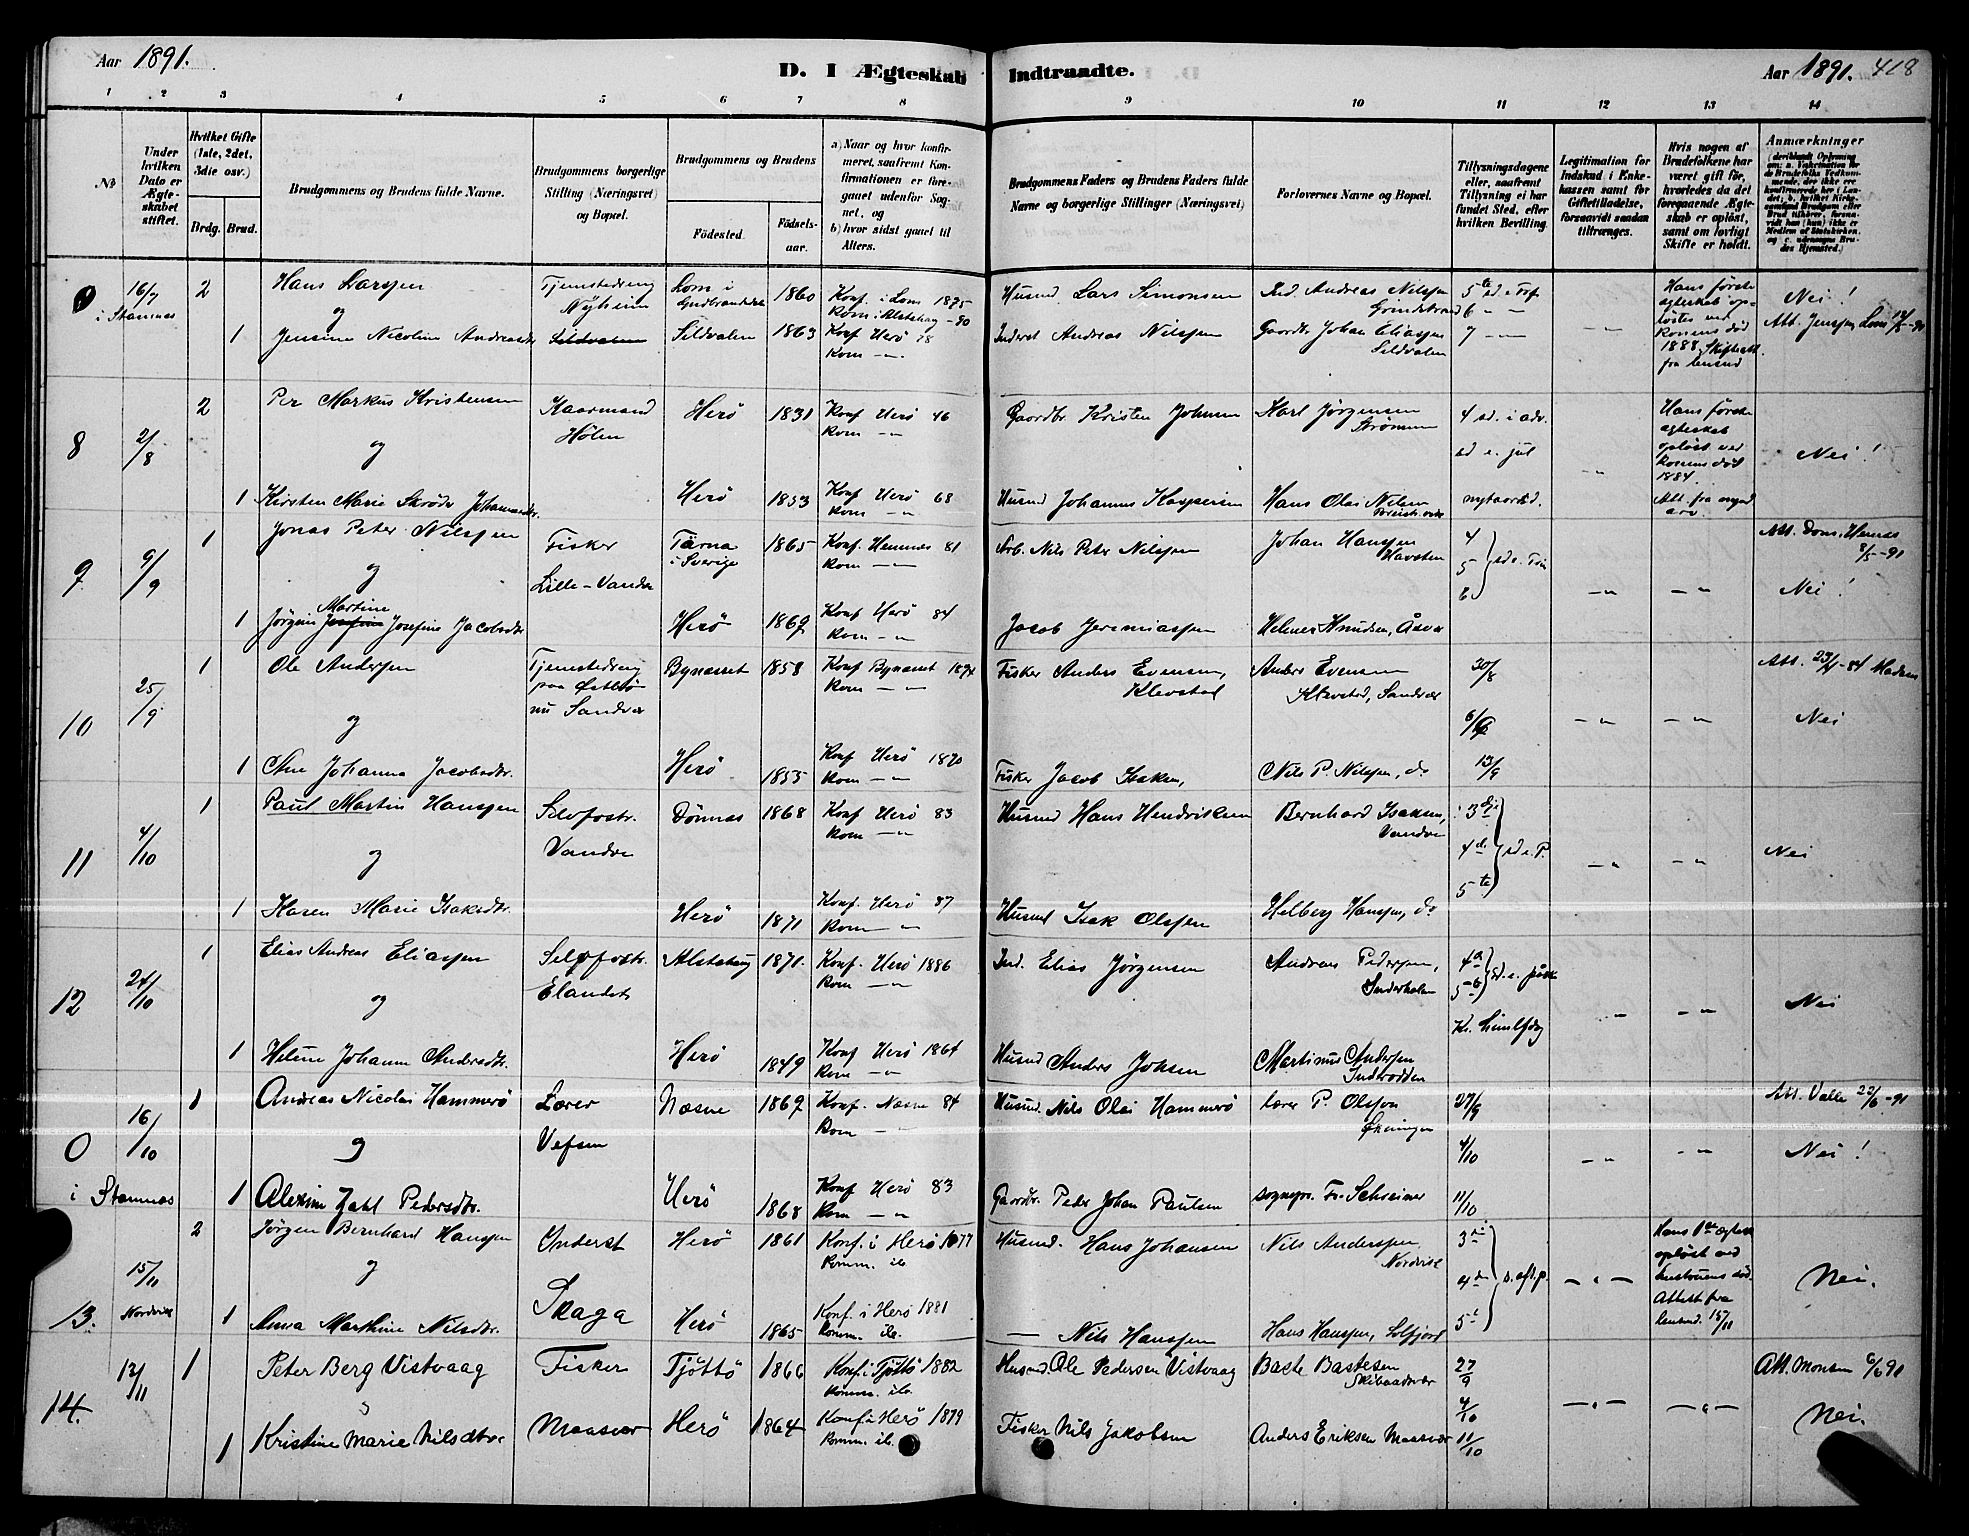 Aar 1891.
D. I Ægteskab Indtraadte.
Aar 1891. 418
1 2 3 4 5 6 7 8 9 10 11 12 13 14
No
Under hvilken Dato er Ægteskabet stiftet.
Hvilket Gifte (1ste, 2det, 3die osv.)
Brdg. Brud.
Brudgommens og Brudens fulde Navne.
Brudgommens borgerlige Stilling (Næringsvei) og Bopæl.
Brudgommens og Brudens
Fødested.
Fødselsaar.
a) Naar og hvor konfirmeret, saafremt Konfirmationen er foregaaet udenfor Sognet, og
b) hvor sidst gaaet til Alters.
Brudgommens Faders og Brudens Faders fulde Navne og borgerlige Stillinger (Næringsvei)
Forlovernes Navne og Bopæl.
Tillysningsdagene eller, saafremt Tillysning ei har fundet Sted, efter hvilken Bevilling.
Legitimation for Indskud i Enkekassen samt for Giftetilladelse, forsaavidt saadan tiltrænges.
Hvis nogen af Brudefolkene har været gift før, hvorledes da det foregaaende Ægteskab er opløst, samt om lovligt Skifte er holdt.
Anmærkninger
0 i Stamnes 16/7 2 Hans Larssen Tjenestedreng Nyheim Lom i Gudbrandsd. 1860 Konf. i Lom 1875 Kom. i Alstahaug -90 Husmd Lars Simonsen Ind. Andreas Nilssen Grindstrand 5te sd. e Tref. 6 - - Hans første egteskab opløstes ved konens død 1888. Skifteatt. fra lensmd Nei!
og
1 Jensine Nicoline Andreasdr Sildvalen Sildvalen 1863 Konf Herö 78 Kom -"- Inderst Andreas Nilssen Gaardbr Johan Eliassen Sildvalen 7 -"- -"- Att. Jenssen Lom
8 2/8 2 Per Markus Kristensen Kaarmand Hölen Herö 1831 Konf Herö 46 Kom -"- Gaardbr. Kristen Johnsen Karl Jørgensen Strømmen 4 sd. i adv. sd e. jul -"- Hans første egteskab opløst ved konens død 1884. Nei!
og
1 Kirsten Marie Strøder Johannesdr. Herö 1853 Konf Herö 68 Kom -"- Husmd Johannes Kaspersen Hans Olai Nilsen nytaarsd.
9 9/9 1 Jonas Peter Nilssen Fisker Lille-Vandve Tärna i Sverige 1865 Konf. Hemnes 81 Kom -"- Arb. Nils Peter Nilssen Johan Hanssen Havsten 4 5 6 sd e. Trin -"- -"- Att. Dons. Hemnes 8/5-91 Nei!
og
1 Jørgine Martine Josefine Jacobsdtr Herö 1869 Konf Herö 84 Kom -"- Jacob Jeremiassen Helmer Knudsen, Åsvær
10 25/9 1 Ole Anderssen Tjenestedreng paa Østbø nu Sandvær Bynæsset 1858 Konf Bynæsset 1874 Kom -"- Fisker Anders Evensen, Klevstad Anders Evensen Klevstad, Sandvær 30/8 6/9 -"- -"- Att. 23/4-84 Madsen Nei
og
1 Ane Johanna Jacobsdtr. Herö 1855 Konf Herö 1870 Kom -"- Fisker Jacob Isaksen, Nils P. Nilssen, do 13/9
11 4/10 1 Paul Martin Hanssen Selvfostr. Vandve Dönnes 1868 Konf Herö 83 Kom -"- Husmd Hans Hendriksen Bernhard Isaksen, Vandve 3die 4de 5te sd e. P. -"- -"- Nei
og
1 Karen Marie Isaksdtr. Herö 1871 Konf. Herö 87 Kom -"- Husmd Isak Olssen Helberg Hanssen, do
12 24/10 1 Elias Andreas Eliassen Selvfostr. Elandet Alstahaug 1871. Konf. Herö 1886 Kom -"- Ind. Elias Jørgensen Andreas Pederssen, Inderholmen 4de 5te sd. e. påske -"- -"- Nei
og
1 Heline Johanne Andersdtr. Herö 1849 Konf Herö 1864 Kom -"- Husmd Anders Johsen Martinus Anderssen Indtrødden Kr. himlfdag
0 i Stamnes 16/10 1 Andreas Nicolai Hammerö Lærer Vefsen Næsne 1869 Konf. Næsne 84 Kom -"- Husmd. Nils Olai Hammerö lærer P. Olsson Økningen 27/9 4/10 -"- -"- Att. Valle 22/6-91 Nei!
og
1 Alexine Zahl Pedersdtr. Herö 1868 Konf Herö 83 Kom -"- Gaardbr. Peder Johan Paulsen sognepr. Fr. Schreiner 11/10
13. 15/11 Nordvik 2 Jørgen Bernhard Hanssen Inderst Skaga Herö 1861 Konf. i Herö 1877 Komm. ib. Husmd. Hans Johansen Nils Anderssen Nordvik 3die 4de 5te s. eft. p. -"- Hans 1ste Ægtesk opløst ved hustruens død. Attest fra lensmd. 15/11 Nei.
og
1 Anna Marthine Nilsdtr. Herö 1865 Konf. i Herö 1881 Komm. ib. — Nils Hanssen Hans Hanssen, Solfjord
14. 12/11 1 Peter Berg Vistvaag Fisker Maasvær Tjöttö 1866 Konf. i Tjöttö 1882 Komm. ib. Husmd. Ole Pedersen Vistvaag Baste Bastesen Skibaadsvær 27/9 4/10 -"- -"- Att. Monsen 6/6 91 Nei.
og
1 Kristine Marie Nilsdtr Herö 1864 Konf. i Herö 1879 Komm. ib. Fisker Nils Jakobsen Anders Eriksen Maasvær 11/10